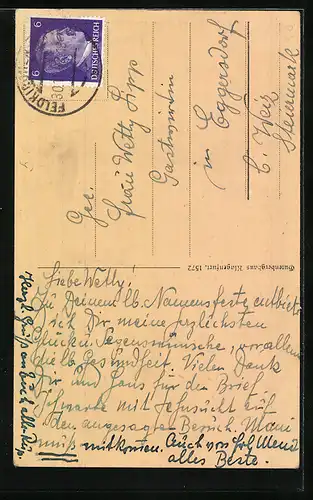 DEUTSCHES REICH
6 6
FELDKIRCHEN
30.
Gec.
Frau Wetty Sepp
Gastwirtin
in Eggersdorf
b. Weiz
Steiermark
Gutenberghaus Klagenfurt, 1572
Liebe Wetty!
Zu Deinem lb. Namensfeste entbiete
ich Dir, meine herzlichsten
Glück u. Segenswünsche, vor allem
die lb. Gesundheit. Vielen Dank
Dir und Hans für den Brief
Ich warte mit Sehnsucht auf
den angesagten Besuch. Mami
muß mitkommen. Auch von
alles Beste.
Herzl. Grüße an Euch alle